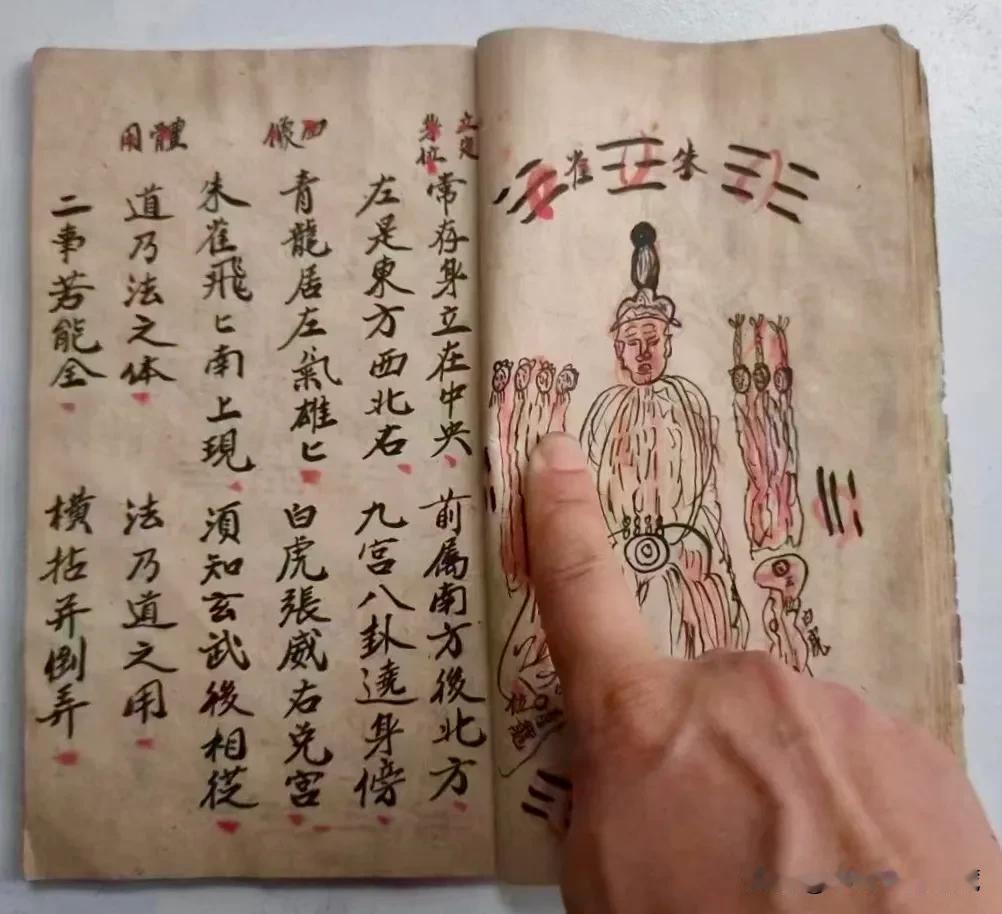 朱雀
白
立定身位
常存身立在中央 前属南方後北方
左是東方西北右 九宫八卦遶身傍
四像
青龍居左氣雄匕 白虎張威右兌宮
朱雀飛匕南上現 須知玄武後相從
體用
道乃法之体 法乃道之用
二事若能全 橫拈并倒弄